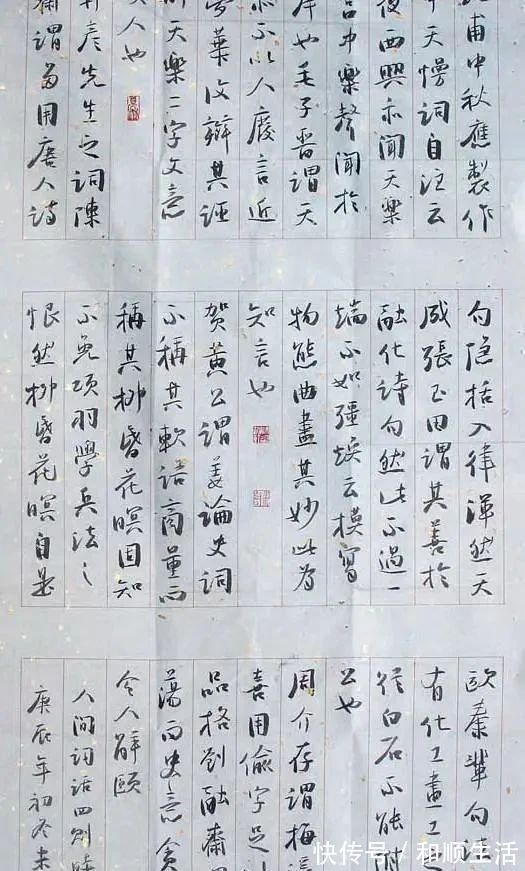 甫中秋應製作
中天慢詞自注云
夜西興亦聞天樂
宮中樂聲聞於
岸也毛子晉謂天
亦不以人廢言近
夢華復辯其誣
天樂二字文意
人也
彥先生之詞陳
謂多用唐人詩
句隱括入律渾然天
成張玉田謂其善於
融化詩句然此不過一
端不如彊煥云模寫
物態曲盡其妙此為
知言也
賀黃公謂姜論史詞
不稱其軟語商量而
稱其柳昏花暝固知
不免項羽學兵法之
恨然柳昏花暝自是
歐秦輩句法
有化工畫工
從白石不能附
公也
周介存謂梅溪
喜用偷字足
品格劉融齋
蕩而史意貪
令人解頤
人間詞話四則
庚辰年初冬
快传号/和顺生活